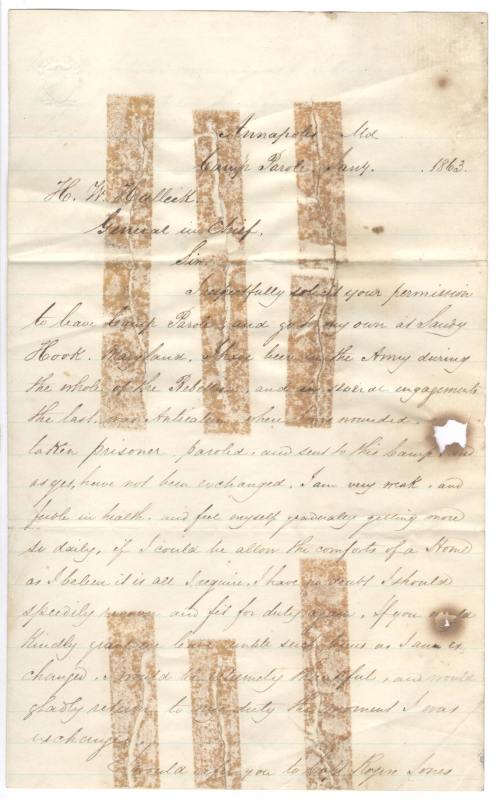 Annapolis Md
Camp Parole Jany. 1863.
H. W. Halleck
General in Chief.
Sir
I respectfully solicit your permission
to leave Camp Parole, and go to my own at Sandy
Hook. Maryland. I have been in the Army during
the whole of the Rebellion, and in several engagements
the last was Antietam where I was wounded.
taken prisoner, paroled, and sent to this Camp, and
as yet, have not been exchanged. I am very weak, and
feeble in health, and feel myself gradually getting more
so daily, if I could be allow the comforts of a Home
as I believe it is all I require. I have no doubt I should
speedily recover and fit for duty again. If you would
kindly grant me leave until such times as I am ex
changed. I would be extremely thankful, and would
gladly return to my duty the moment I was
exchanged.
I would refer you to Roger Jones